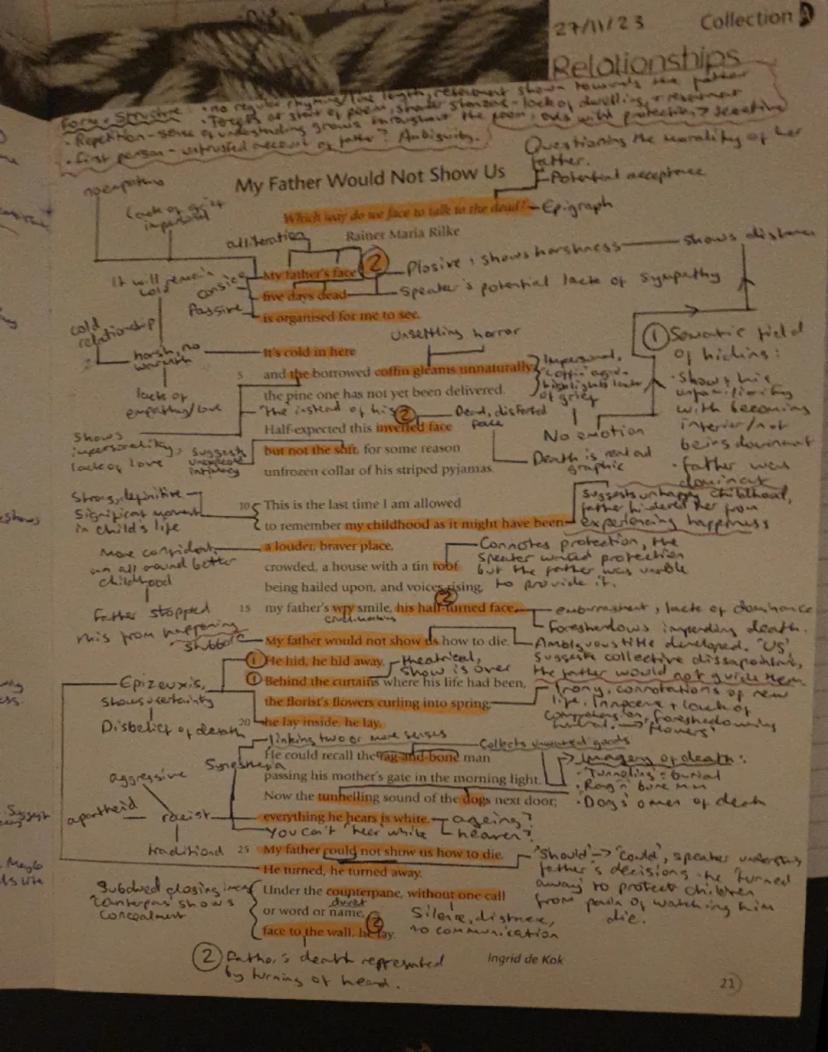 27/11/23
Collection A
Relationships
Form + Structure • no regular rhyming/line length, resentment shown towards the father
• Tercets at start of poem, shorter stanzas - lack of dwelling + resentment
• Repetition - sense of understanding grows throughout the poem,
• First person - untrusted account of father? Ambiguity.
Questioning the morality of her
father.
Potential acceptance
no empathy
My Father Would Not Show Us
Lack of grief
Which way do we face to talk to the dead?
Epigraph
Rainer Maria Rilke
alliteration
shows distance
My father's face
② Plosive, shows harshness
five days dead
Speaker's potential lack of sympathy
Passive
is organised for me to see.
It will remain
cold
cold
relationship
Unsettling horror
harsh, no
warmth
It's cold in here
5 and the borrowed coffin gleams unnaturally;
Impersonal,
highlights lack
of grief
① Semantic field
of hiding:
• Shows his
unfamiliarity
with becoming
inferior/not
being dominant
• father was
dominant
lack of
empathy/love
the pine one has not yet been delivered.
'The' instead of 'his'
② Dead, distorted
face
No emotion
Half-expected this inverted face
Shows
impersonality,
lack of love
Suggests
unexpected
intimacy
but not the soft, for some reason
Death is real and
graphic
unfrozen collar of his striped pyjamas.
Strong, definitive
Significant moment
in child's life
10 This is the last time I am allowed
to remember my childhood as it might have been:
Suggests unhappy childhood,
father hindered her from
experiencing happiness
More confident,
an all around better
childhood
a louder, braver place,
crowded, a house with a tin roof
Connotes protection, the
speaker wanted protection
but the father was unable
to provide it.
being hailed upon, and voices rising,
Father stopped
this from happening
15 my father's wry smile, his half-turned face.
②
embarrassment, lack of dominance
Foreshadows impending death.
stubborn
My father would not show us how to die.
Ambiguous title developed. "Us"
suggests collective disappointment,
the father would not guide them
① He hid, he hid away.
theatrical,
show is over
① Behind the curtains where his life had been,
Epizeuxis,
shows uncertainty
the florist's flowers curling into spring,
Irony, connotations of new
life, innocence + lack of
foreshadowing
funeral → 'flowers'
Disbelief of death
20 he lay inside, he lay.
linking two or more senses
Synesthesia
He could recall the rag-and-bone man
Collects unwanted goods
passing his mother's gate in the morning light.
Imagery of death:
• 'Tunnelling' = burial
• Rag n' bone man
• Dogs' omen of death
aggressive
Now the tunnelling sound of the dogs next door;
apartheid
racist
everything he hears is white.
ageing?
heaven?
You can't 'hear' white
traditional
25 My father could not show us how to die.
He turned, he turned away.
'Should' → 'could', speaker understands
father's decisions - he 'turned
away' to protect children
from pain of watching him
die.
Subdued closing lines
'counterpane' shows
concealment
Under the counterpane, without one call
or word or name,
Silence, distance,
no communication
②
face to the wall, he lay.
② Father's death represented
by turning of head.
Ingrid de Kok
21